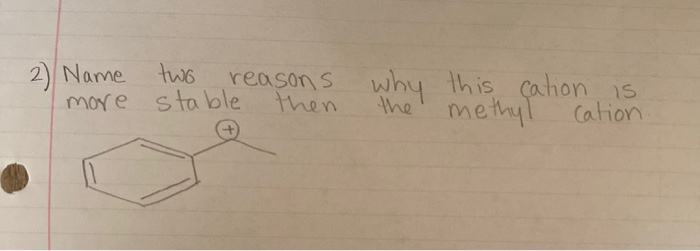 2) Name two reasons why this cation is
more stable then the methyl cation.
+